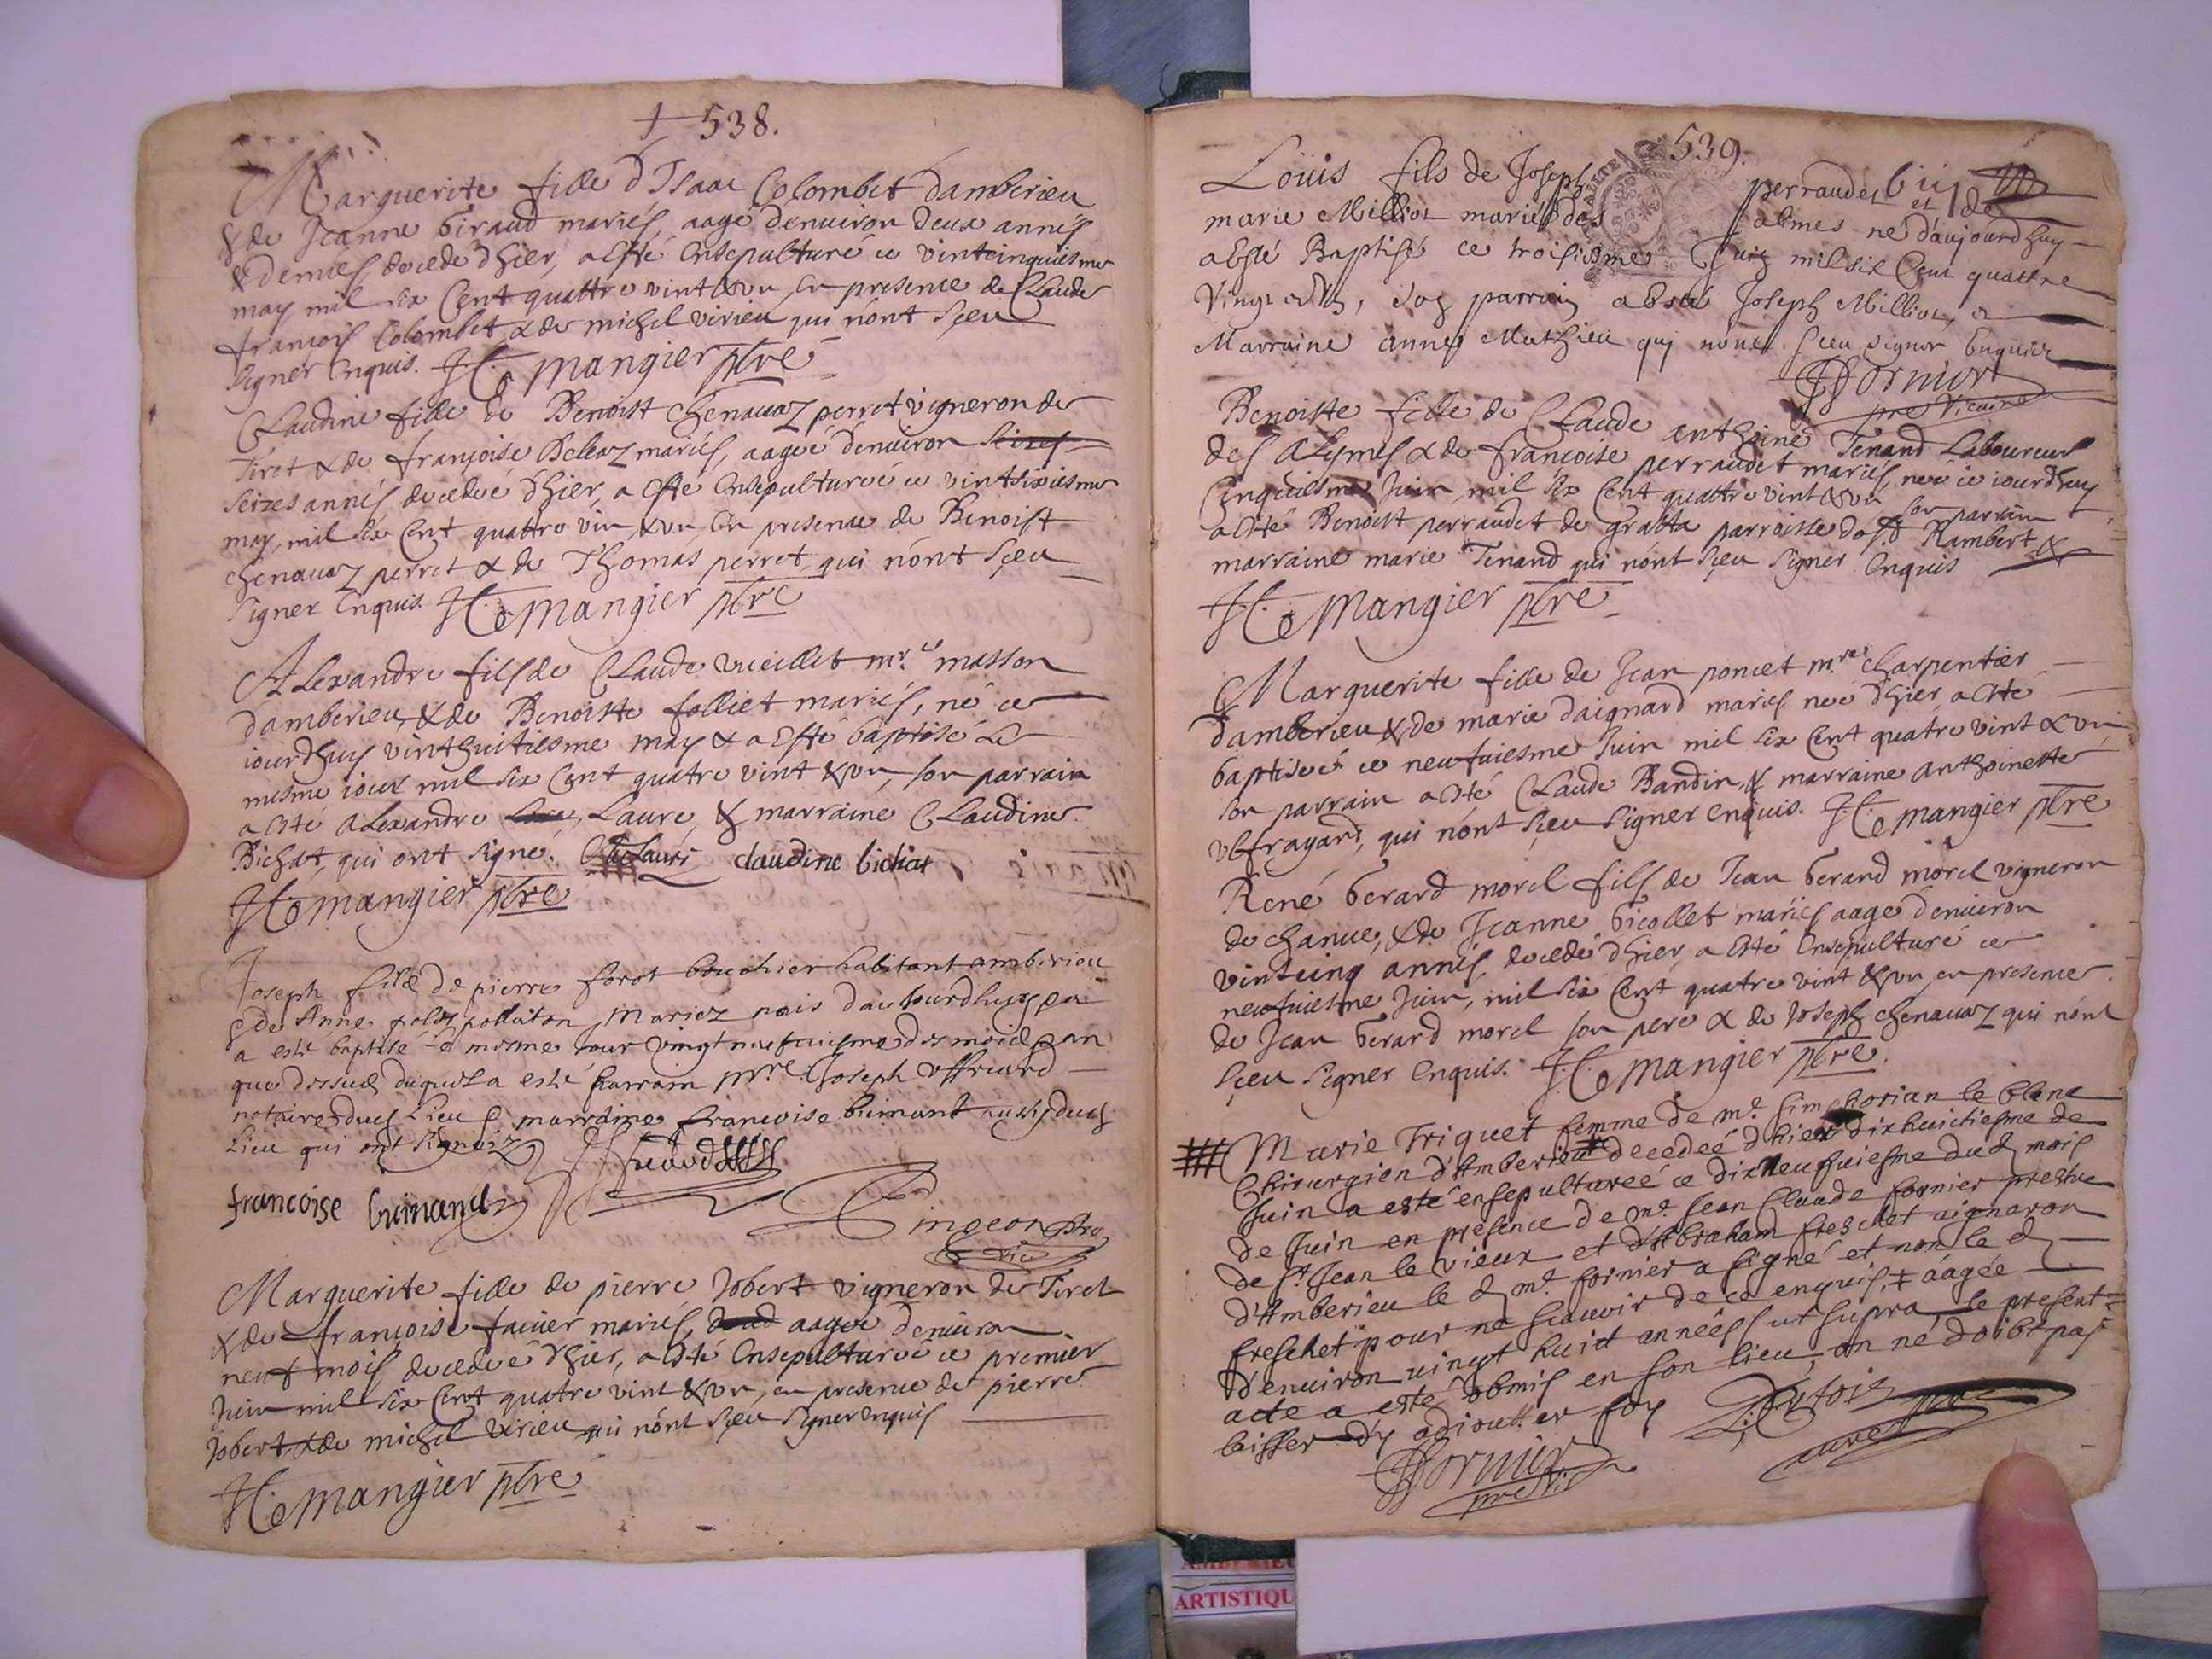 538.
Marguerite fille d'Isaac Colombet damberieu
& de Jeanne Giraud mariés, aagé denuiron deux annés
& demies, decedé d'hier, a esté ensepulturé ce vintcinquiesme
may mil six cent quattre vint & vn, en presence de Claude
françois Colombet & de michel virieu qui n'ont sçeu
signer enquis. mangier pbre
Claudine fille de Benoist chenauaz perret vigneron de
Tiret & de françoise mariés, aageé denuiron
seizes annés, decedeé d'hier, a esté ensepultureé ce vintsixiesme
may, mil six cent quattre vin & vn, en presence de Benoist
chenauaz perret & de Thomas perret, qui n'ont sçeu
signer enquis. mangier pbre
Alexandre fils de Claude vueillet mre masson
damberieu, & de Benoistte folliet mariés, né ce
iourdhuy vinthuitiesme may & a esté baptisé le
mesme iour mil six cent quatre vint & vn, son parrain
a esté Alexandre Laure, & marraine Claudine
Bichat, qui ont signé. Laure claudine bichat
mangier pbre
Joseph fils de pierre forot bouchier habitant amberieu
& de Anne pollaton Mariez nais daujourdhuy &
a esté baptisé le mesme jour vingt neufuiesme des mois & an
que dessus duquel a esté parrain mre Joseph uffriard
notaire dud lieu & marraine francoise guinant aussy dud
lieu qui ont signéz
francoise guinand
Marguerite fille de pierre Jobert vigneron de Tiret
& de françoise mariés, aageé denuiron
neuf mois decedeé d'hier, a esté ensepultureé ce premier
Juin mil six cent quatre vint & vn, en presence de pierre
Jobert & de michel virieu qui n'ont sçeu signer enquis
mangier pbre
539.
Loüis fils de Joseph perraudet et de
marie Milliot mariés des alimes né d'aujourdhuy
a esté Baptisé ce troisiesme Juin mil six Cent quattre
vingt et vn, son parrain a esté Joseph Milliot, et
Marraine anne Mathieu qui n'ont sceu signer enquis
fornier
pre vicaire
Benoistte fille de Claude anthoine Tenand Laboureur
des Alymes & de françoise perraudet mariés, neé ce iourdhuy
cinquiesme Juin mil six cent quattre vint & vn son parrain
a esté Benoist perraudet de grabta parroisse de St Rambert &
marraine marie Tenand qui n'ont sçeu signer enquis
mangier pbre
Marguerite fille de Jean poncet mre charpentier
damberieu & de marie daignard mariés neé d'hier, a esté
baptiseé ce neufuiesme Juin mil six cent quatre vint & vn,
son parrain a esté Claude Bandin, & marraine anthoinette
, qui n'ont sçeu signer enquis. mangier pbre
René Gerard morel fils de Jean Gerard morel vigneron
de chanue, & de Jeanne bicollet mariés aagé denuiron
vintcinq annés, decedé d'hier a esté ensepulturé ce
neufuiesme Juin, mil six cent quatre vint & vn, en presence
de Jean Gerard morel son pere & de Joseph chenauaz qui n'ont
sçeu signer enquis. mangier pbre
Marie Triquet femme de me simphorian le blanc
Chirurgien d'Amberieu decedeé d'hier dixhuictiesme de
Juin a esté ensepultureé ce dixneufuiesme dud mois
de Juin en presence de me Jean Claude fornier prestre
de st Jean le vieux et d'Abraham freschet vigneron
d'Amberieu le d me fornier a signé et non le d
freschet pour ne sçauoir de ce enquis, + aagée
d'enuiron vingt huict années ut supra le present
acte a esté obmis en son lieu, on ne doibt pas
laisser d'y adioutter foy
fornier
curé
AMBERIEU
ARTISTIQU